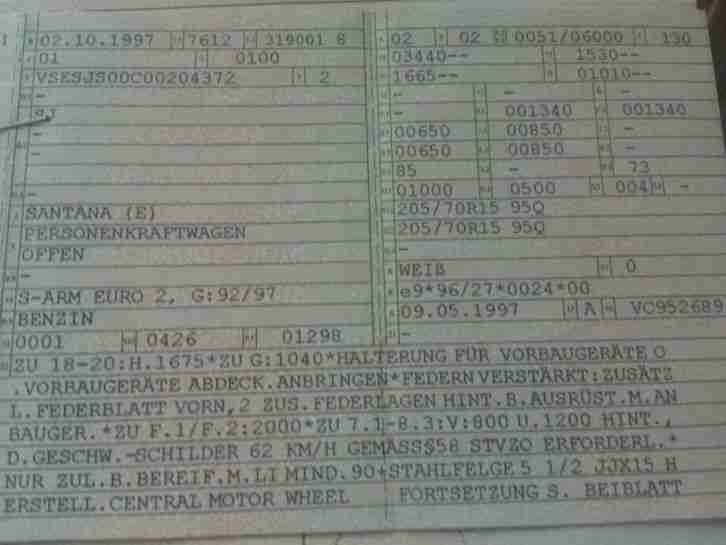 02.10.1997 7612 319001 8
01 0100
VSESJS00C00204372 2
-
-
-
-
SANTANA (E)
PERSONENKRAFTWAGEN
OFFEN
-
S-ARM EURO 2, G:92/97
BENZIN
0001 0426 01298
02 02 0051/06000 130
03440-- 1530--
1665-- 01010--
- - -
- 001340 001340
00650 00850 -
00650 00850 -
85 - 73
01000 0500 004 -
205/70R15 95Q
205/70R15 95Q
-
-
WEIß 0
e9*96/27*0024*00
09.05.1997 A VC952689
-
ZU 18-20:H.1675*ZU G:1040*HALTERUNG FÜR VORBAUGERÄTE O
.VORBAUGERÄTE ABDECK.ANBRINGEN*FEDERN VERSTÄRKT:ZUSÄTZ
L.FEDERBLATT VORN,2 ZUS.FEDERLAGEN HINT.B.AUSRÜST.M.AN
BAUGER.*ZU F.1/F.2:2000*ZU 7.1-8.3:V:800 U.1200 HINT.,
D.GESCHW.-SCHILDER 62 KM/H GEMÄSS§58 STVZO ERFORDERL.*
NUR ZUL.B.BEREIF.M.LI MIND.90*STAHLFELGE 5 1/2 JJX15 H
ERSTELL.CENTRAL MOTOR WHEEL FORTSETZUNG S. BEIBLATT